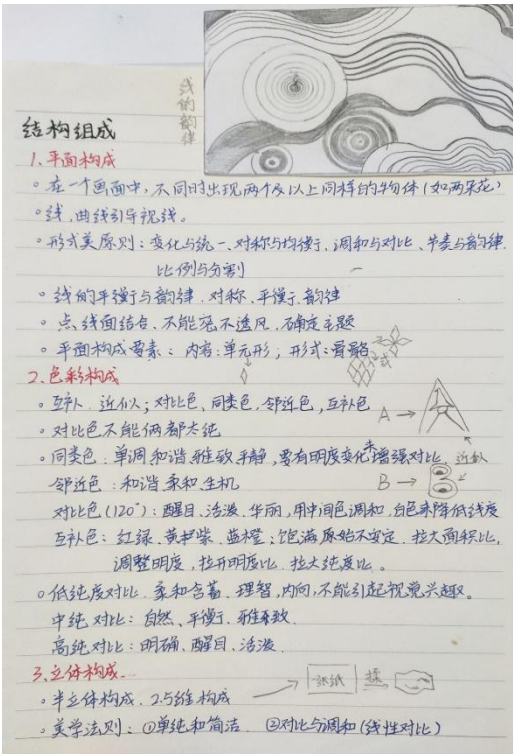 线的韵律
结构组成
1.平面构成
。在一个画面中,不同时出现两个及以上同样的物体(如两朵花)
。线,曲线引导视线。
。形式美原则:变化与统一、对称与均衡、调和与对比、节奏与韵律.
比例与分割
。线的平衡与韵律.对称、平衡、韵律
。点、线面结合、不能密不透风,确定主题
。平面构成要素:内容:单元形;形式:骨骼
2.色彩构成
。互补.近似;对比色、同类色,邻近色,互补色
A →
。对比色不能俩都太纯
。同类色:单调,和谐,雅致,平静,要有明度变化来增强对比
近似
邻近色:和谐.柔和.生机
B →
对比色(120°):醒目.活泼.华丽,用中间色调和,白色来降低纯度
互补色:红绿.黄紫.蓝橙;饱满.原始.不安定.拉大面积比,
调整明度,拉开明度比.拉大纯度比。
。低纯度对比.柔和含蓄.理智,内向,不能引起视觉兴趣。
中纯对比:自然、平衡、雅致.
高纯对比:明确、醒目、活泼
3.立体构成
。半立体构成.2.5维构成
张纸 揉
。美学法则:①单纯和简洁 ②对比与调和(线性对比)